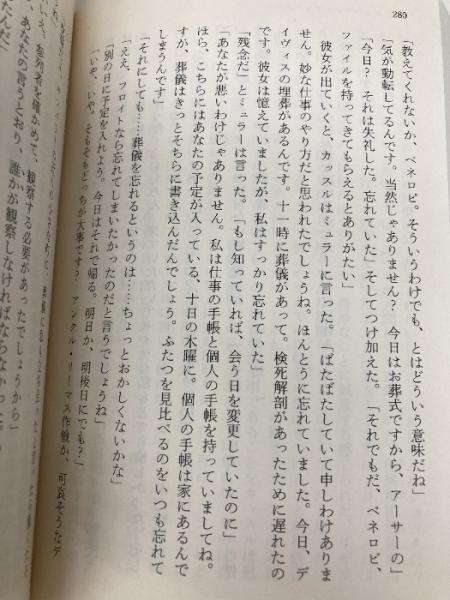 280
「教えてくれないか、ペネロピ。そういうわけでも、とはどういう意味だね」
「気が動転してるんです。当然じゃありません? 今日はお葬式ですから、アーサーの」
「今日? それは失礼した。忘れていた」そしてつけ加えた。「それでもだ、ペネロピ、
ファイルを持ってきてもらえるとありがたい」
彼女が出ていくと、カッスルはミュラーに言った。「ばたばたしていて申しわけありま
せん。妙な仕事のやり方だと思われたでしょうね。ほんとうに忘れていました。今日、デ
イヴィスの埋葬があるんです。十一時に葬儀があって。検死解剖があったために遅れたの
です。彼女は憶えていましたが、私はすっかり忘れていた」
「残念だ」とミュラーは言った。「もし知っていれば、会う日を変更していたのに」
「あなたが悪いわけじゃありません。私は仕事の手帳と個人の手帳を持っていましてね。
ほら、こちらにはあなたの予定が入っている、十日の木曜に。個人の手帳は家にあるんで
すが、葬儀はきっとそちらに書き込んだんでしょう。ふたつを見比べるのをいつも忘れて
しまうんです」
「それにしても……葬儀を忘れるというのは……ちょっとおかしくないかな」
「ええ、フロイトなら忘れてしまいたかったのだと言うでしょうね」
「別の日に予定を入れよう。今日はそれで帰る。明日か、明後日にでも?」
「いや、いや。そもそもどっちが大事です? アンクル・リーマス作戦か、可哀そうなデ
参列者を確かめて、観察する必要があったでしょうから」
あなたの言うとおり、誰かが観察しなければならなかった